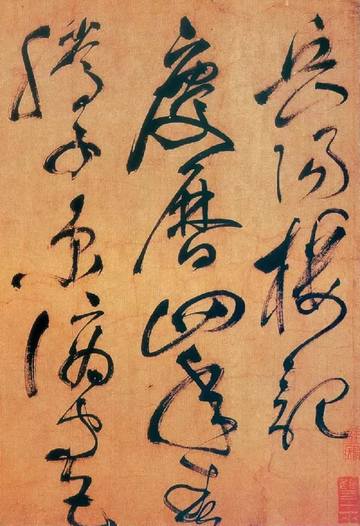 岳陽樓記
慶曆四年春
滕子京謫守巴